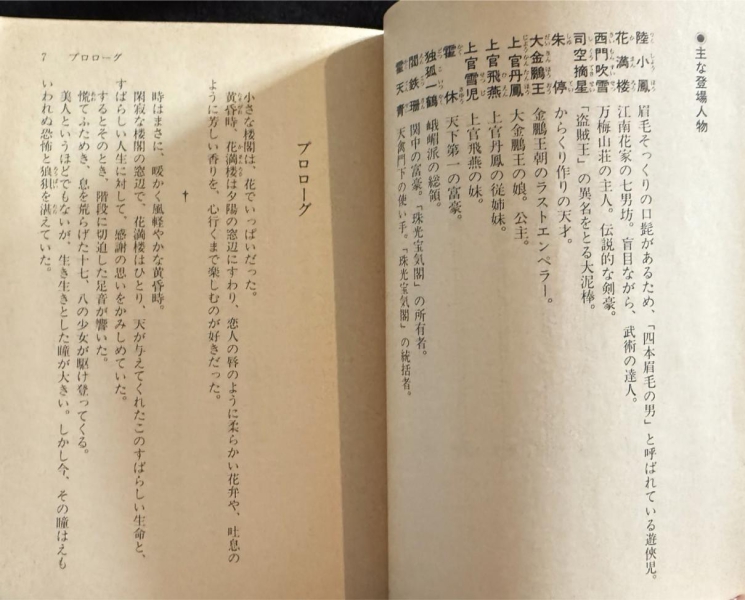 ●主な登場人物
陸小鳳 眉毛そっくりの口髭があるため、「四本眉毛の男」と呼ばれている遊侠児。
花満楼 江南花家の七男坊。盲目ながら、武術の達人。
西門吹雪 万梅山荘の主人。伝説的な剣豪。
司空摘星 「盗賊王」の異名をとる大泥棒。
朱停 からくり作りの天才。
大金鵬王 金鵬王朝のラストエンペラー。
上官丹鳳 大金鵬王の娘。公主。
上官飛燕 上官丹鳳の従姉妹。
上官雪児 上官飛燕の妹。
霍休 天下第一の富豪。
独孤一鶴 峨嵋派の総領。
閻鉄珊 関中の富豪。「珠光宝気閣」の所有者。
霍天青 天禽門下の使い手。「珠光宝気閣」の統括者。
プロローグ
小さな楼閣は、花でいっぱいだった。
黄昏時、花満楼は夕陽の窓辺にすわり、恋人の唇のように柔らかい花弁や、吐息の
ように芳しい香りを、心行くまで楽しむのが好きだった。
†
時はまさに、暖かく風軽やかな黄昏時。
閑寂な楼閣の窓辺で、花満楼はひとり、天が与えてくれたこのすばらしい生命と、
すばらしい人生に対して、感謝の思いをかみしめていた。
するとそのとき、階段に切迫した足音が響いた。
慌てふためき、息を荒らげた十七、八の少女が駆け登ってくる。
美人というほどでもないが、生き生きとした瞳が大きい。しかし今、その瞳はえも
いわれぬ恐怖と狼狽を湛えていた。
7 プロローグ